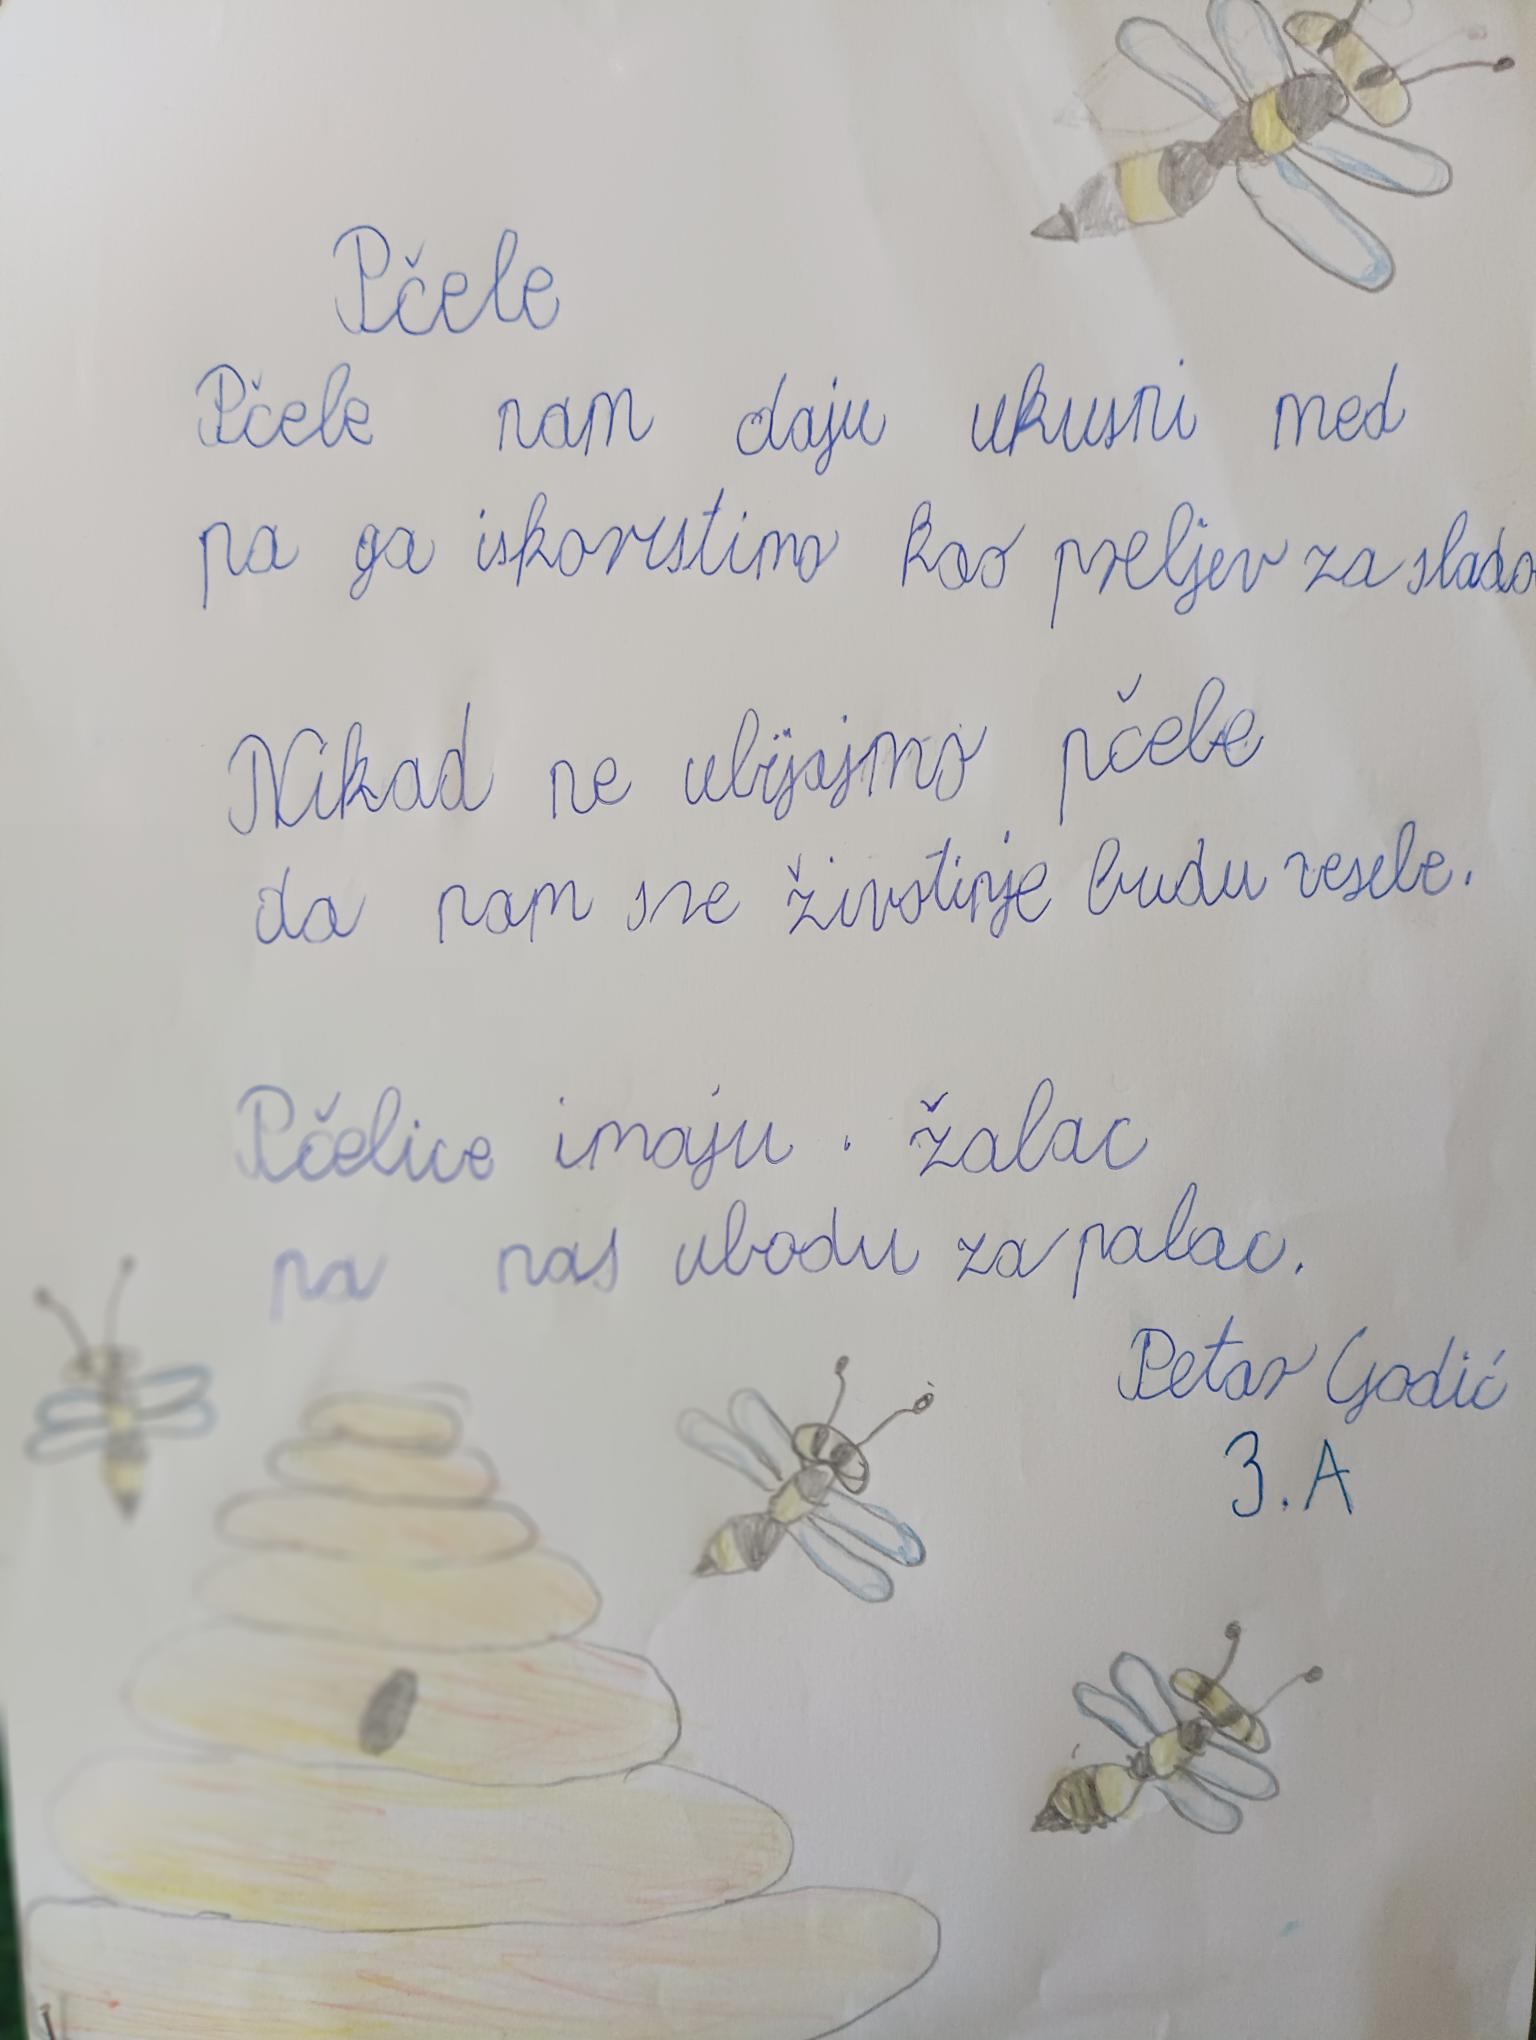 Pčele
Pčele nam daju ukusni med
pa ga iskoristimo kao preljev za
Nikad ne ubijajmo pčele
da nam sve životinje budu vesele.
Pčelice imaju . žalac
pa nas ubodu za palac.
Petar Godić
3.A